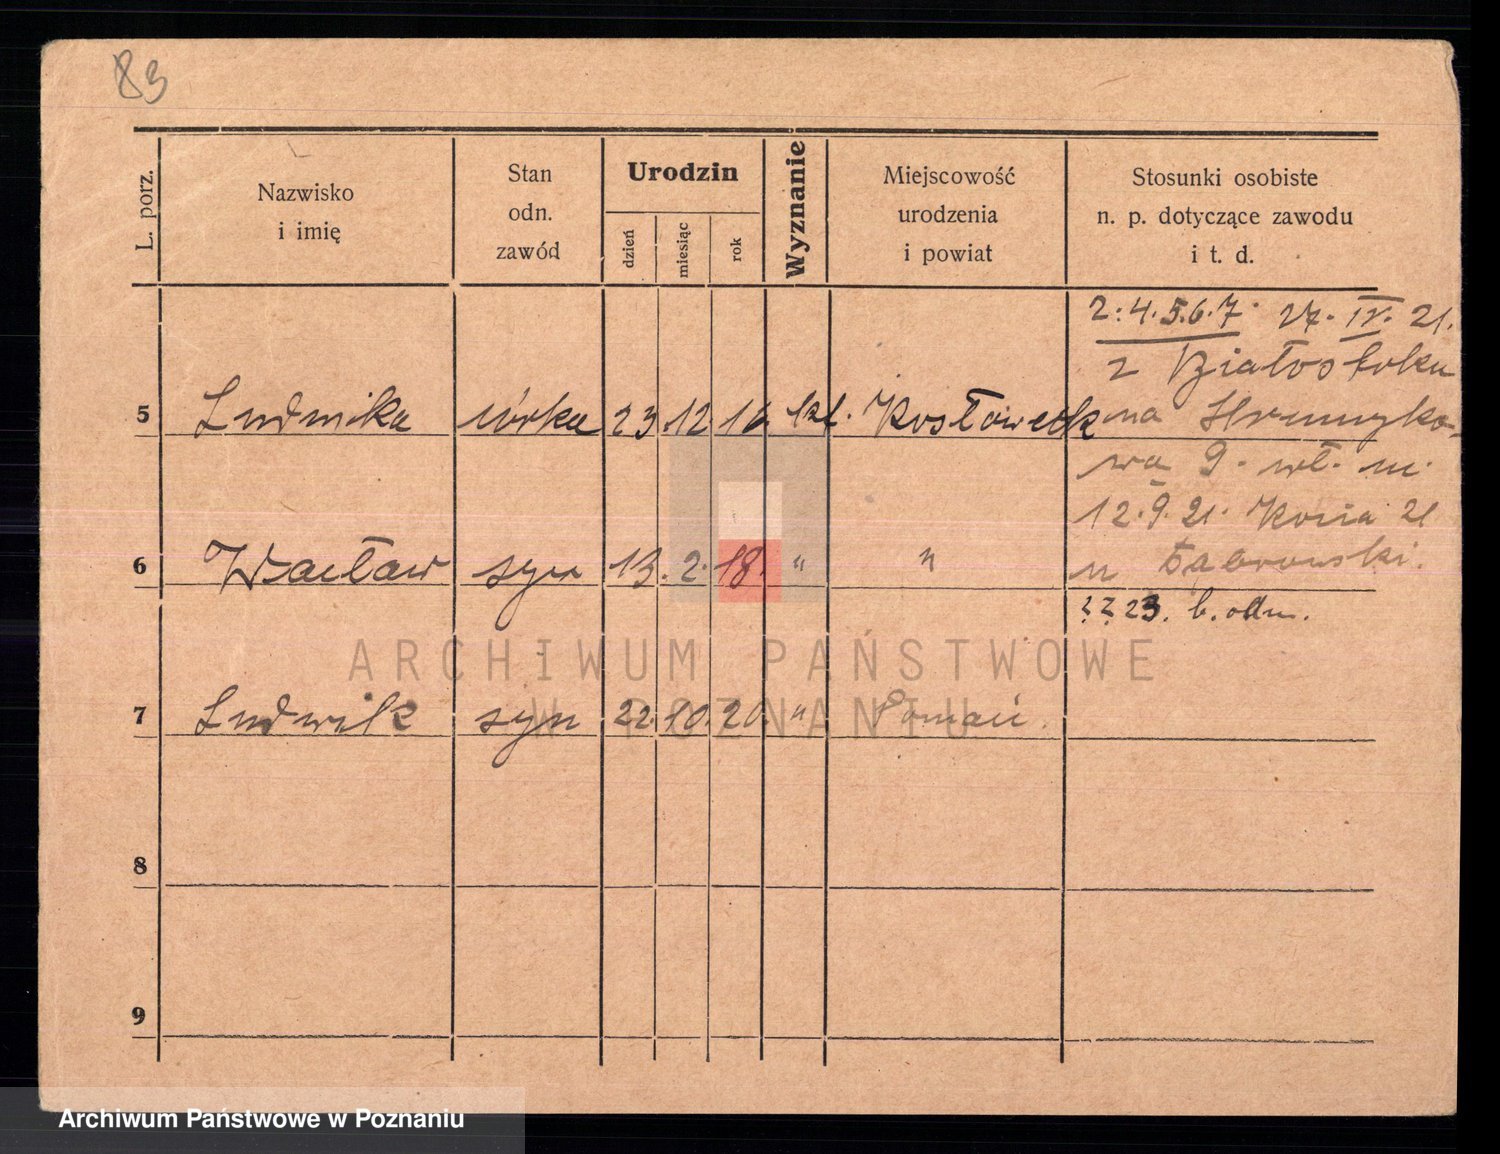 83
L. porz.
Nazwisko
i imię
Stan
odn.
zawód
Urodzin
dzień
miesiąc
rok
Wyznanie
Miejscowość
urodzenia
i powiat
Stosunki osobiste
n. p. dotyczące zawodu
i t. d.
2.4.5.6.7. 27. IV. 21.
z Białostoku
5 Ludmika córka 23 12 16 kat. na
wa 9. wł. m.
12.9.21.
6 Wacław syn 13. 2. 18. " " u Dąbrowski.
23. b. odm.
7 Ludwik syn 22. 10. 20. " Poznań.
8
9
ARCHIWUM PAŃSTWOWE
W POZNANIU
Archiwum Państwowe w Poznaniu